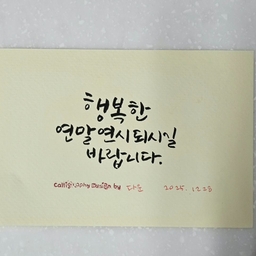 행복한
연말연시되시길
바랍니다.
Calligraphy Design by 다온 2025. 12.23